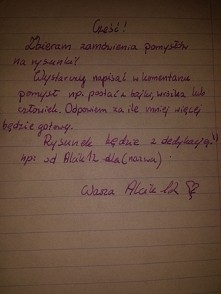 Cześć!
Zbieram zamówienia pomysłów
na rysunki!
Wystarczy napisać w komentarzu
pomysł np. postać z bajki, wróżka lub
człowiek. Odpowiem za ile mniej więcej
będzie gotowy.
Rysunek będzie z dedykacją
np: od Alcik12 dla (nazwa).
Wasza Alcik12